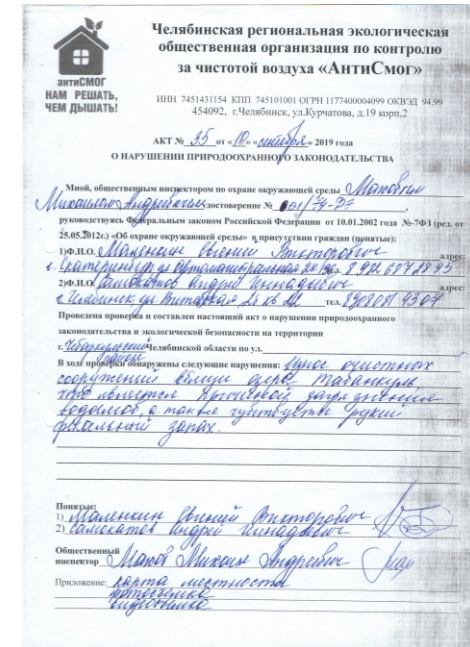 Челябинская региональная экологическая
общественная организация по контролю
за чистотой воздуха «АнтиСмог»
антиСМОГ
НАМ РЕШАТЬ,
ЧЕМ ДЫШАТЬ!
ИНН 7451431154 КПП 745101001 ОГРН 1177400004099 ОКВЭД 94.99
454092, г.Челябинск, ул.Курчатова, д.19 корп.2
АКТ № 35 от «10» «сентября» 2019 года
О НАРУШЕНИИ ПРИРОДООХРАННОГО ЗАКОНОДАТЕЛЬСТВА
Мной, общественным инспектором по охране окружающей среды
Михаилом Андреевичем удостоверение №
руководствуясь Федеральным законом Российской Федерации от 10.01.2002 года №-7ФЗ (ред. от
25.05.2012г.) «Об охране окружающей среды» в присутствии граждан (понятые):
1)Ф.И.О. Маленкин Евгений Викторович адрес:
г. Екатеринбург ул
2)Ф.И.О. Самокатов Андрей Геннадьевич адрес:
г. Челябинск ул. тел.
Проведена проверка и составлен настоящий акт о нарушении природоохранного
законодательства и экологической безопасности на территории
г. Чебаркульский Челябинской области по ул.
районе
В ходе проверки обнаружены следующие нарушения: очистных
сооружений озера Табанкуль,
что является причиной загрязнения
водоёмов, а также
запах.
Понятые:
1) Маленкин Евгений Викторович
2) Самокатов Андрей Геннадьевич
Общественный
инспектор Михаил Андреевич
Приложение: карта местности
фотосъемка
видеосъемка